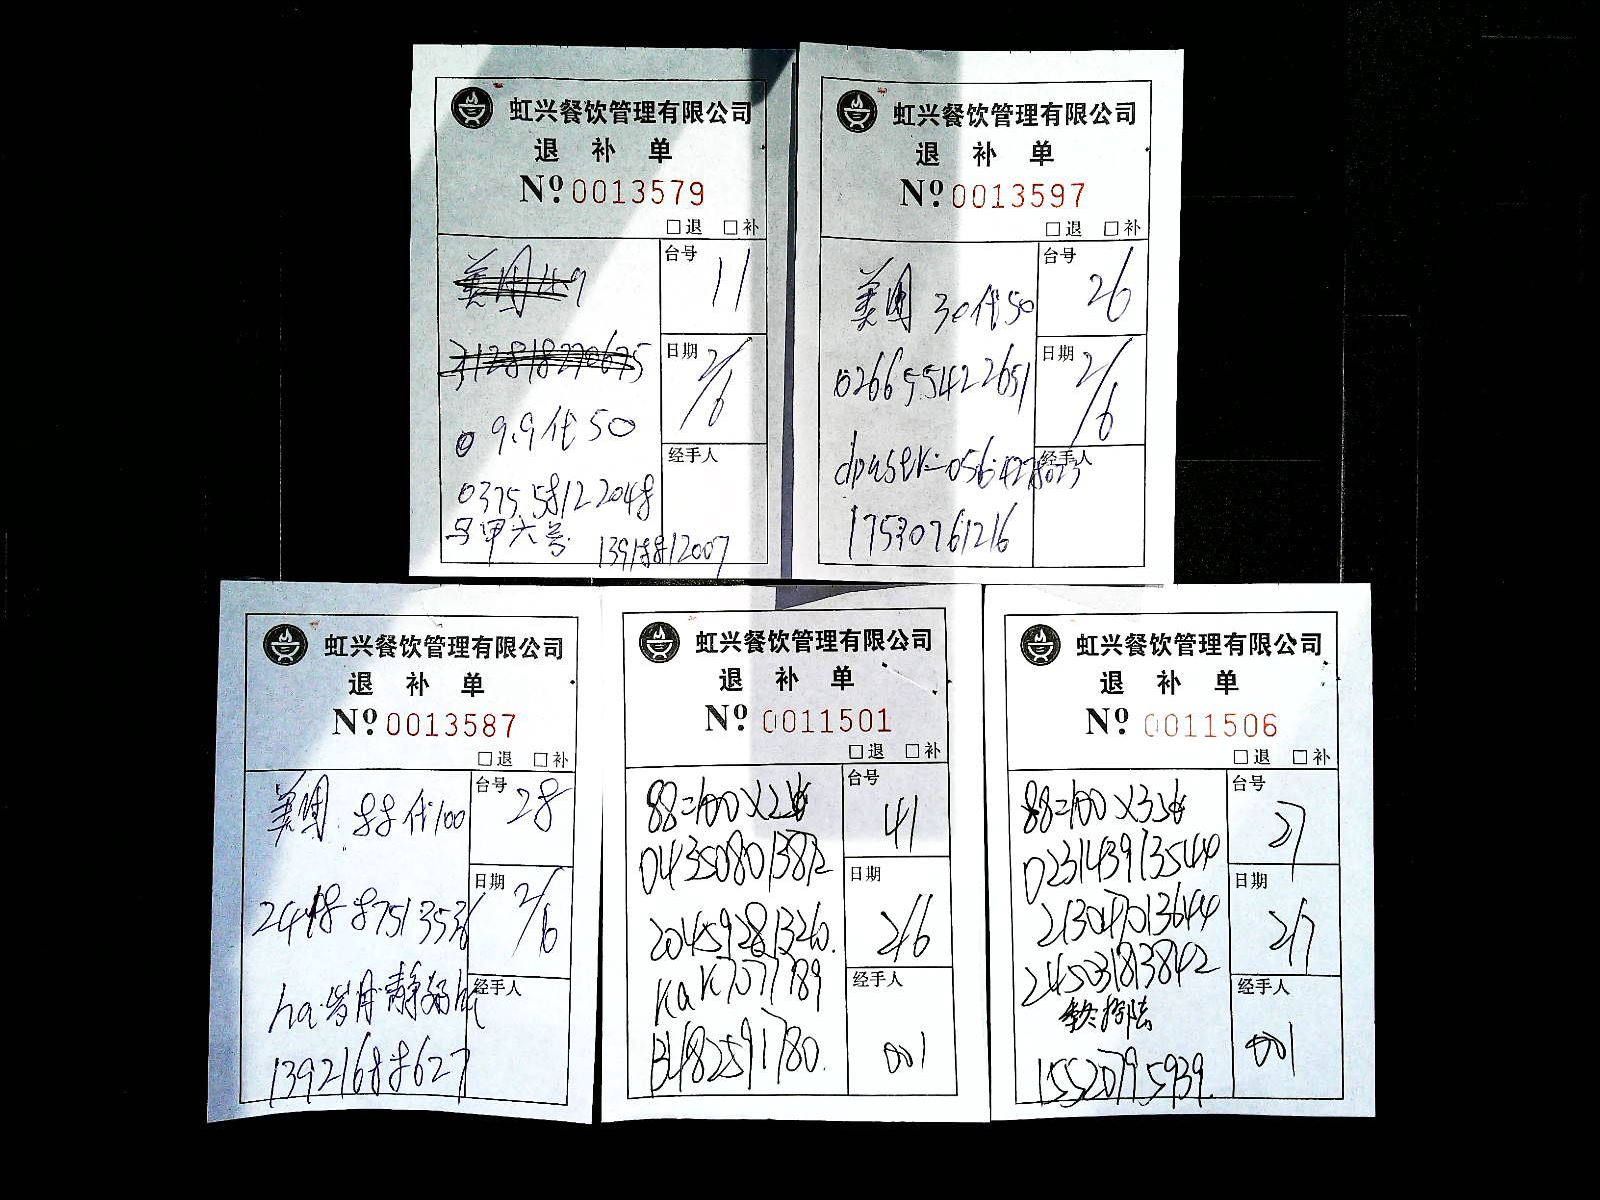 虹兴餐饮管理有限公司
退 补 单
Nº 0013579
□退 □补
台号
11
日期
2/6
9.9代50
0375 5812 2048
马甲六号
13918812007
经手人
虹兴餐饮管理有限公司
退 补 单
Nº 0013597
□退 □补
美团 30代50
台号
26
0266 5542 2651
日期
2/6
经手人
17530761216
虹兴餐饮管理有限公司
退 补 单
Nº 0013587
□退 □补
美团 88代100
台号
28
日期
2/6
经手人
13921688627
虹兴餐饮管理有限公司
退 补 单
Nº 0011501
□退 □补
88=100X2
台号
41
043508013872
日期
2/6
204592813260.
经手人
001
虹兴餐饮管理有限公司
退 补 单
Nº 0011506
□退 □补
88=100X3
台号
27
023143913544
213047013644
日期
2/7
245031813842
经手人
15520795939.
001